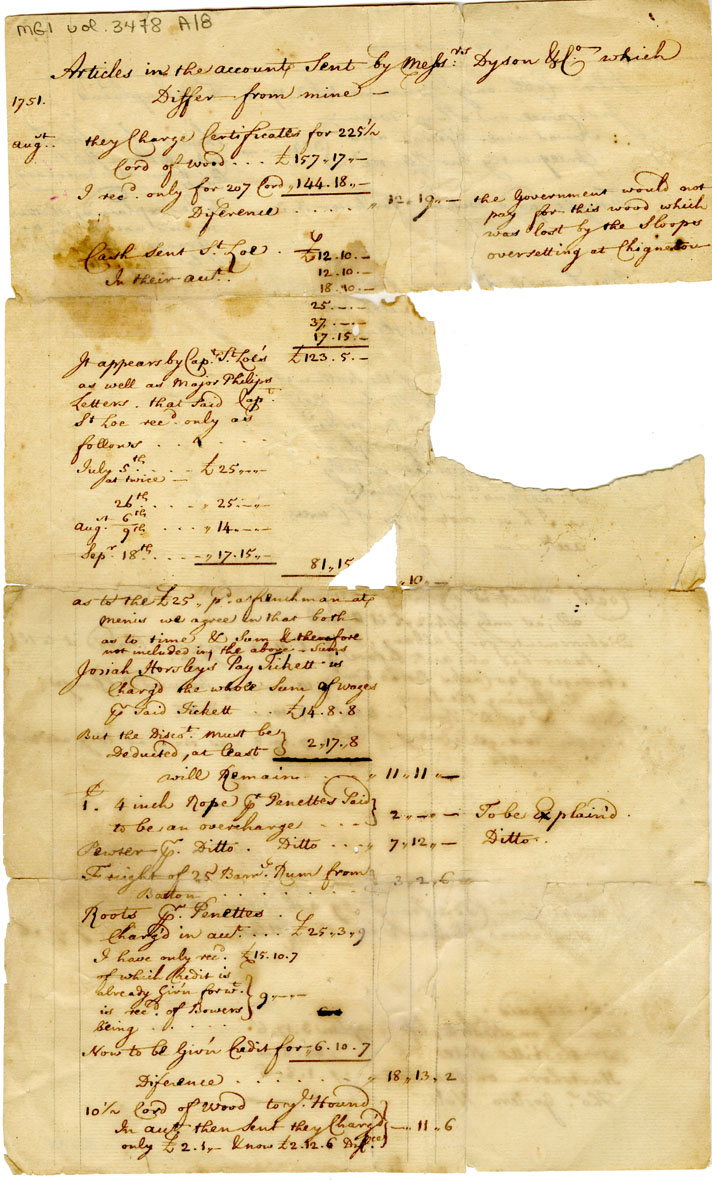 MG1 vol. 3478 A/8
Articles in the account Sent by Mess.rs Dyson & Co. which
1751. Differ from mine —
Augt. they Charge Certificates for 225½
Cord of Wood . . . £157,,17,,—
I recd. only for 207 Cord ,,144.18,,—
Diference . . . . ,, 12,,19,,— the Government would not
pay for this wood which
was lost by the Sloops
oversetting at Chignecton
Cash Sent St. Loe . £12.10.—
In their accot. 12.10.—
18.10.—
25.—.—
37.—.—
17.15.—
It appears by Capt. St. Loe's £123.5.—
as well as Major Philips
Letters. that Said Capt.
St Loe recd. only as
follows . . .
July 5th . . . . £25,,—,,—
at twice —
26th . . . ,, 25,,—,,—
Augst 6th
9th . . . ,, 14.—.—
Sepr. 18th . . . ,, 17.15,,— 81,,15
,,10.—
as to the £25,, pd. a frenchman at
Menis we agree in that both
as to time & Sum & therefore
not included in the above Sums
Josiah Horsley's Pay Tickett is
Charg'd the whole Sum of wages
pr. Said Tickett . . £14.8.8
But the Discot. must be
Deducted, at least } 2,,17,,8
will Remain . . . ,, 11,,11,,—
1. 4 inch Rope pr. Penettes Said
to be an overcharge . . . } 2,,—,,— To be Explain'd.
Pewter pr. Ditto. Ditto . . ,, 7,,12,,— Ditto.
Freight of 25 Barrs. Rum from
. . . . . . . 3,,2,,6
Roots pr. Penettes .
Charg'd in aut. . . . £25,,3,,9
I have only recd. £15.10.7
of which Credit is
already Giv'n for wt.
is recd. of Bowers } 9,,—,,—
being . . . . .
Now to be Giv'n Credit for ,,6.10.7
Diference . . . . . . ,, 18,,13,,2
10½ Cord of Wood to ye. Hound
In aut. then Sent they Charg'd } —,,11,,6
only £2.1,,— & now £2.12.6 Difce.